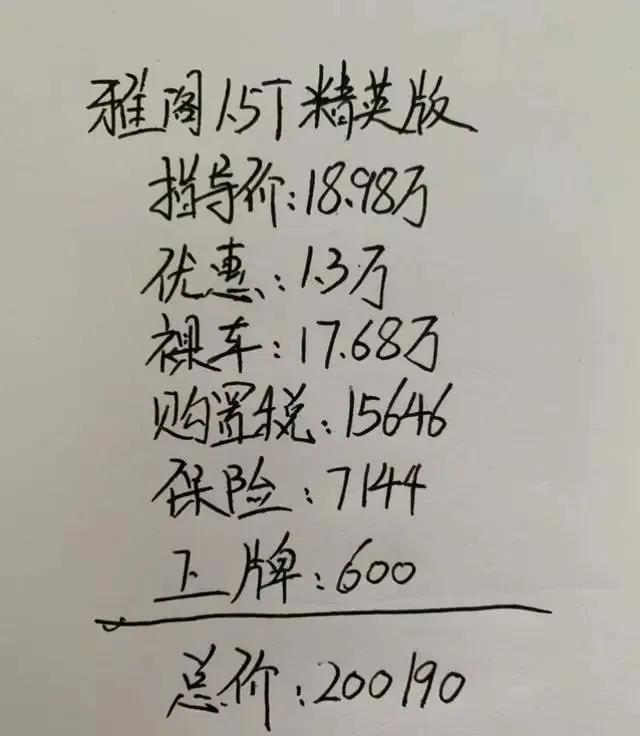 雅阁1.5T精英版
指导价:18.98万
优惠:1.3万
裸车:17.68万
购置税:15646
保险:7144
上牌:600
总价:200190